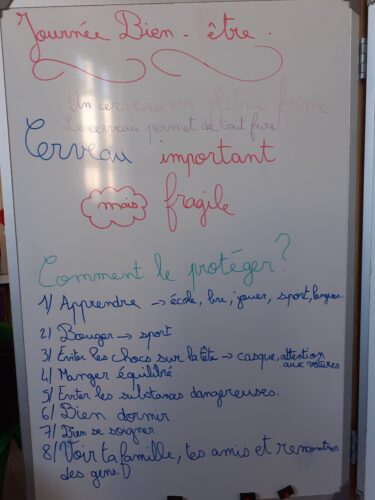 Journée Bien-être.
Un cerveau en pleine forme
Le cerveau permet de tout faire
Cerveau important
mais fragile
Comment le protéger?
1/ Apprendre → école, lire, jouer, sport, langues
2/ Bouger → sport
3/ Eviter les chocs sur la tête → casque, attention aux voitures
4/ Manger équilibré.
5/ Eviter les substances dangereuses.
6/ Bien dormir
7/ Bien se soigner
8/ Voir ta famille, tes amis et rencontrer
des gens.